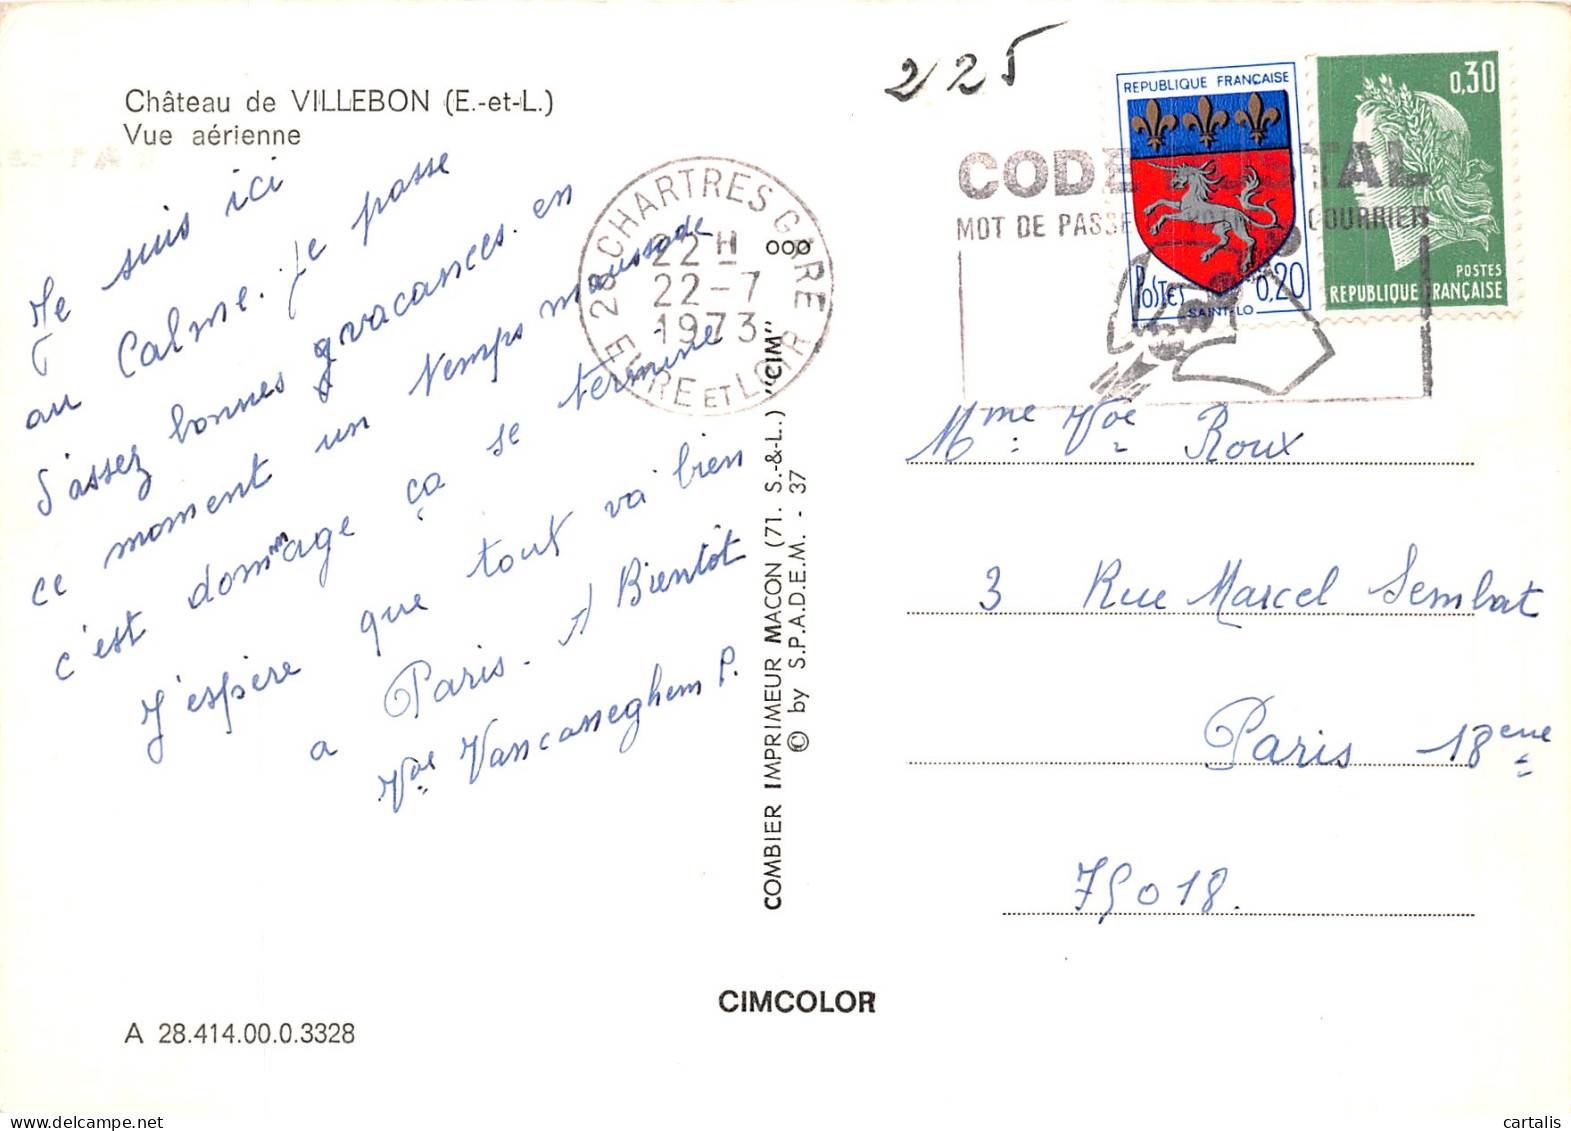 Château de VILLEBON (E.-et-L.)
Vue aérienne
Je suis ici
au Calme. Je passe
d'assez bonnes vacances. en
ce moment un temps maussade
c'est dommage ça se termine.
J'espère que tout va bien
a Paris. A Bientôt
Vve Vancasseghem P.
28 CHARTRES GARE
22 H
22-7
1973
EURE ET LOIR
ooo
COMBIER IMPRIMEUR MACON (71. S.-&-L.) "CIM"
© by S.P.A.D.E.M. - 37
225
CODE POSTAL
MOT DE PASSE COURRIER
REPUBLIQUE FRANÇAISE
POSTES 0,20
SAINT-LO
0,30
POSTES
REPUBLIQUE FRANÇAISE
Mme Vve Roux
3 Rue Marcel Sembat
Paris 18ème
75018.
CIMCOLOR
A 28.414.00.0.3328
cartalis